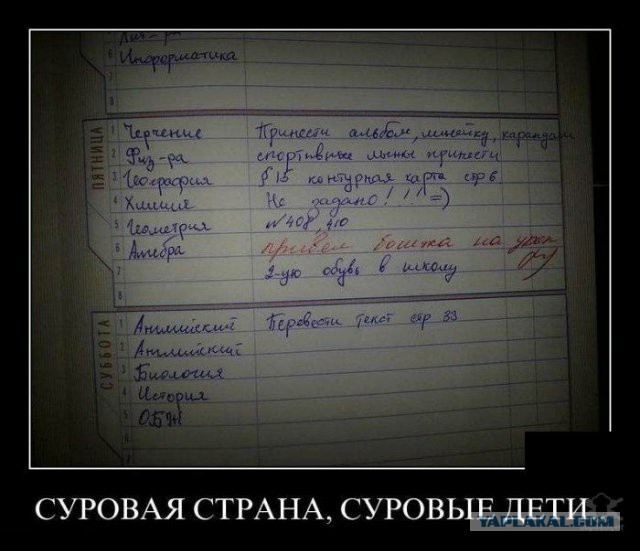 Лит-ра
6 Информатика
7
8
ПЯТНИЦА
1 Черчение Принести альбом, линейку, карандаш
2 Физ-ра спортивные лыжи принести
3 География § 15 контурная карта стр 6
4 Химия Не задано!!! =)
5 Геометрия № 408, 410
6 Алгебра привел бошка на урок
7 2-ую обувь в школу
8
СУББОТА
1 Английский Перевести текст стр 33
2 Английский
3 Биология
4 История
5 ОБЖ
6
7
СУРОВАЯ СТРАНА, СУРОВЫЕ ДЕТИ
YAPLAKAL.COM